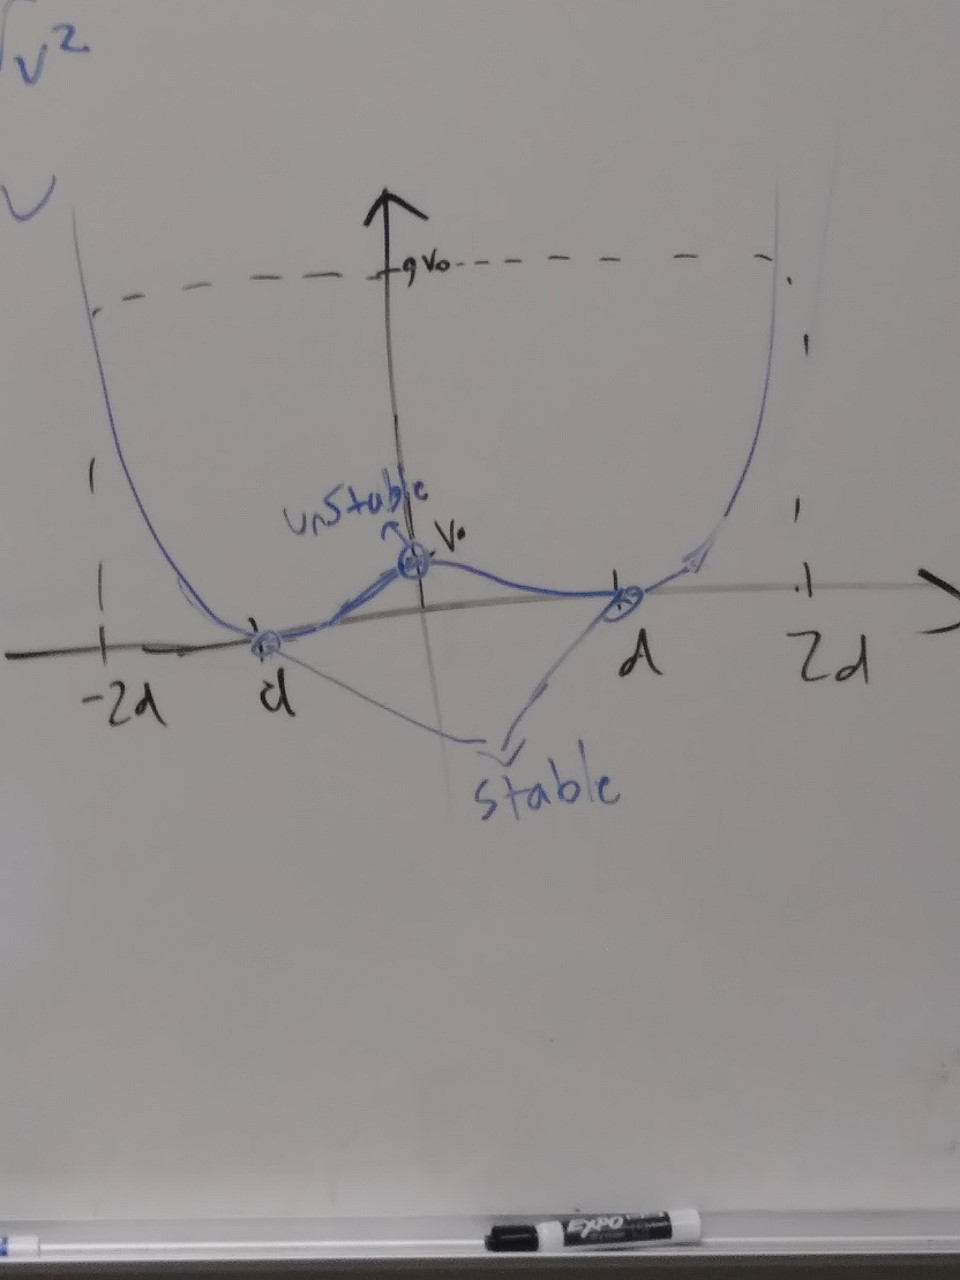 √v²
V
9V₀
unstable
V₀
-2d
d
d
2d
stable
EXPO